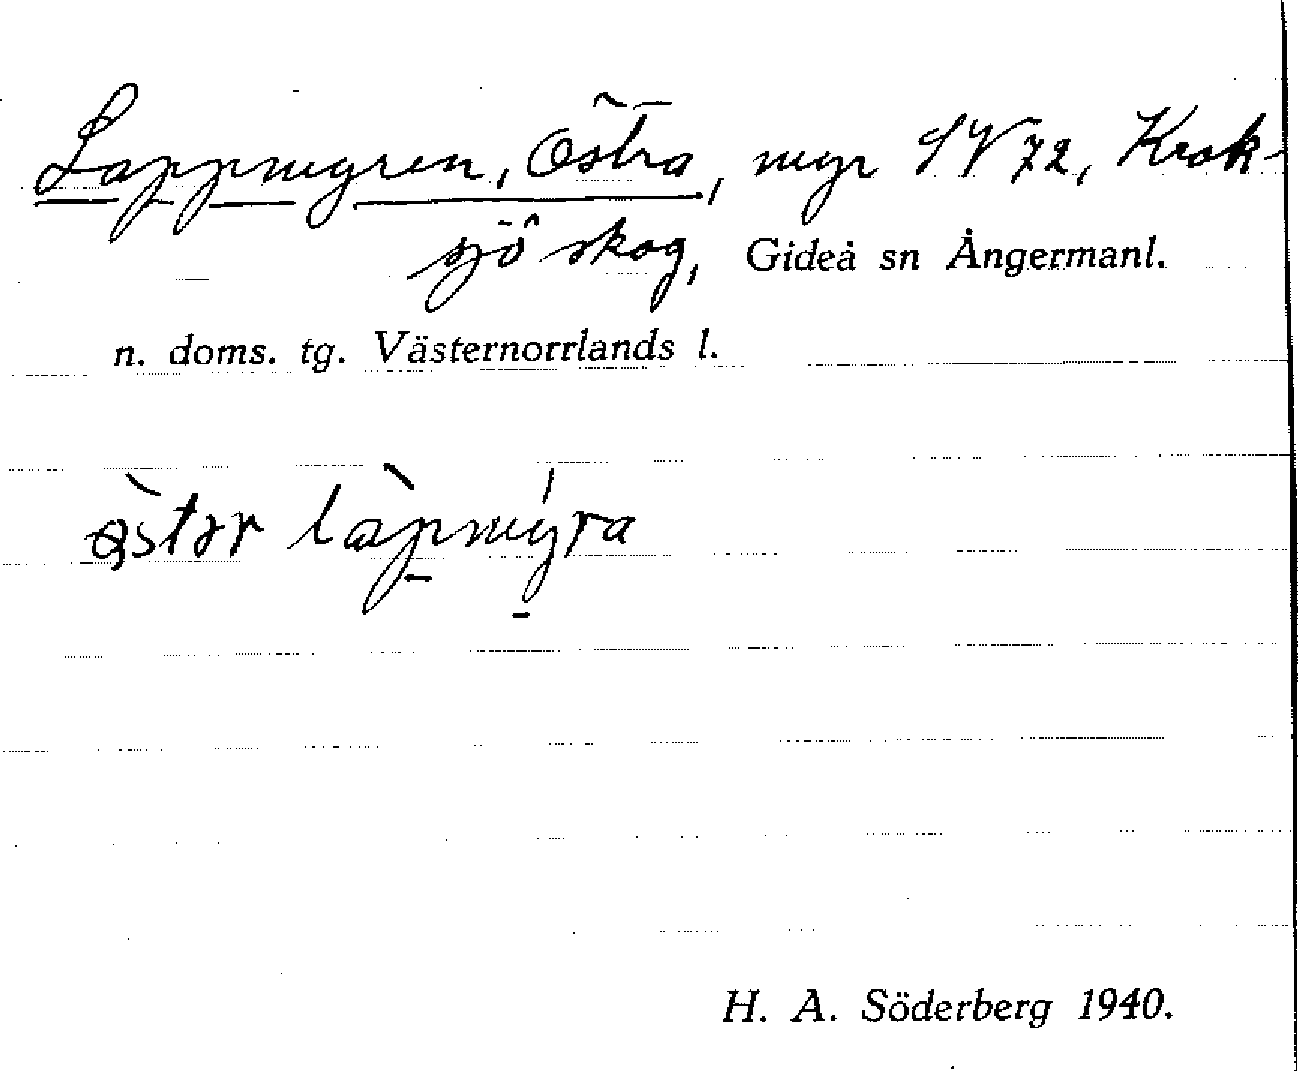 Lappmyren, Östra, myr SV 72, Krok-
sjö skog, Gideå sn Ångermanl.
n. doms. tg. Västernorrlands l.
lap̀mýra
H. A. Söderberg 1940.